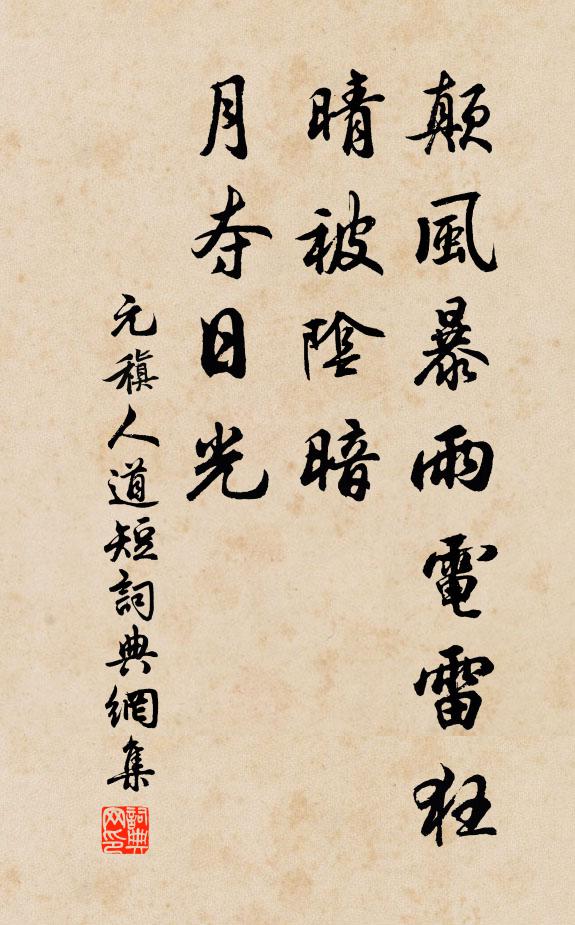 顛風暴雨電雷狂
晴被陰暗
月夺日光
元稹人道短詞典網集
詞典
网印